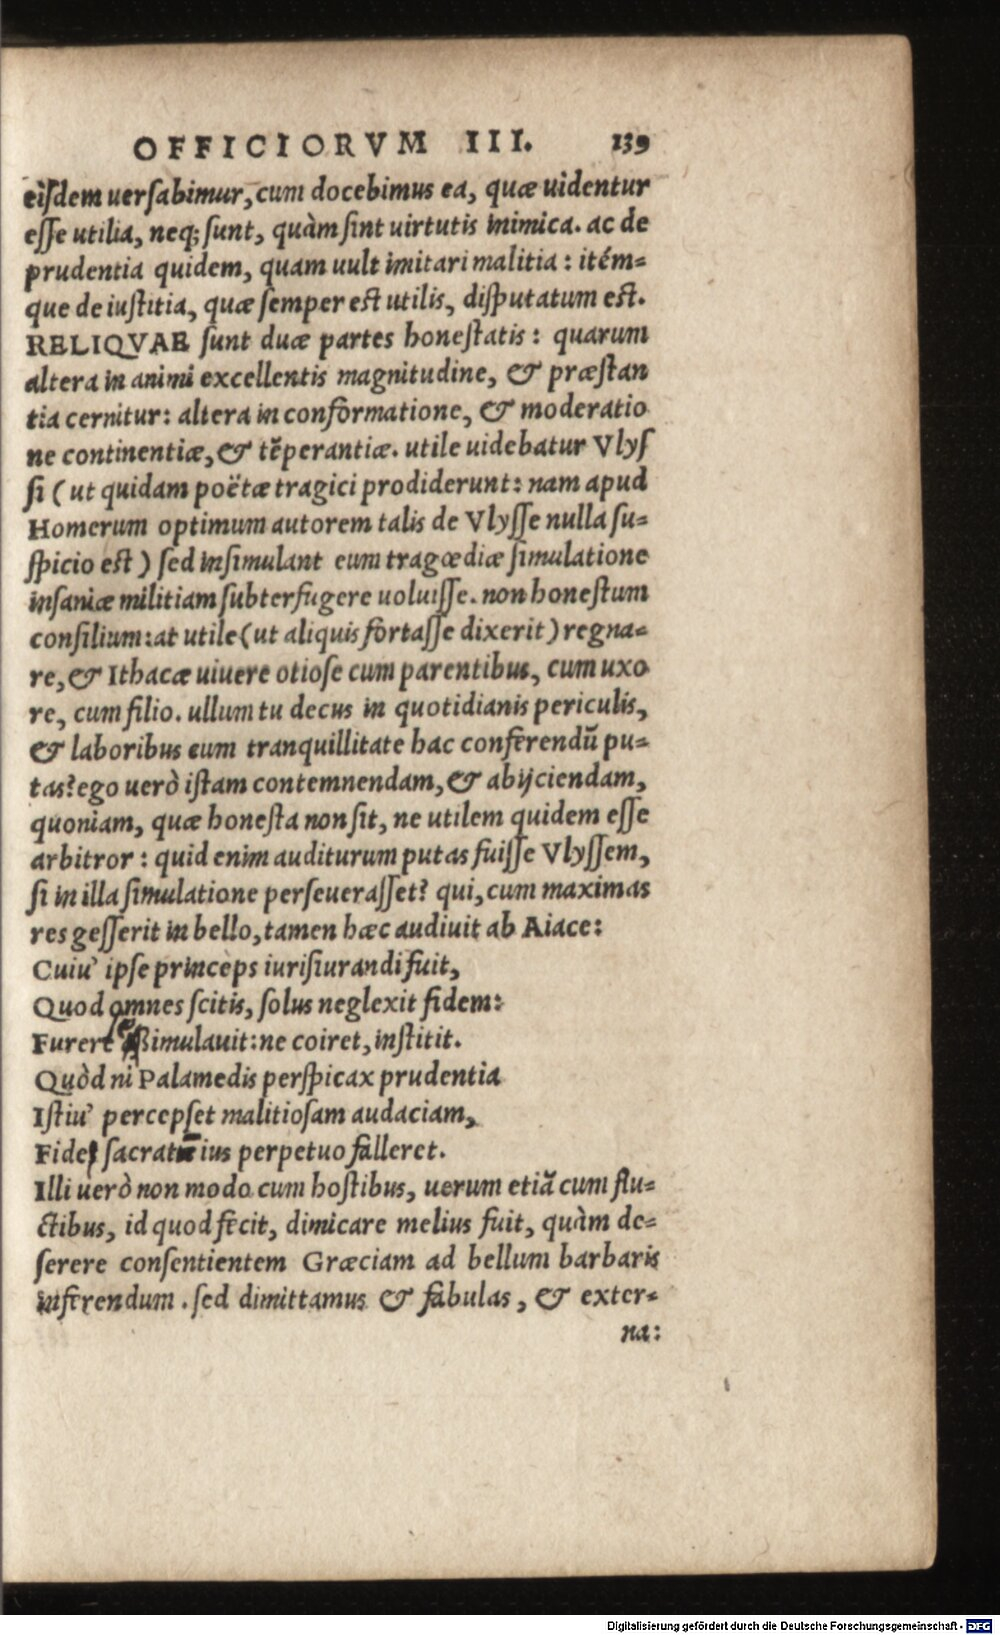 OFFICIORVM III. 139
eiſdem uerſabimur, cum docebimus ea, quæ uidentur
eſſe utilia, neq; ſunt, quàm ſint uirtutis inimica. ac de
prudentia quidem, quam uult imitari malitia: itém=
que de iuſtitia, quæ ſemper eſt utilis, diſputatum eſt.
RELIQVAE ſunt duæ partes honeſtatis: quarum
altera in animi excellentis magnitudine, & præſtan
tia cernitur: altera in conformatione, & moderatio
ne continentiæ, & tẽperantiæ. utile uidebatur Vlyſ
ſi (ut quidam poëtæ tragici prodiderunt: nam apud
Homerum optimum autorem talis de Vlyſſe nulla ſu=
ſpicio eſt) ſed inſimulant eum tragœdiæ ſimulatione
inſaniæ militiam ſubterfugere uoluiſſe. non honeſtum
conſilium: at utile (ut aliquis fortaſſe dixerit) regna=
re, & Ithacæ uiuere otioſe cum parentibus, cum uxo
re, cum filio. ullum tu decus in quotidianis periculis,
& laboribus cum tranquillitate hac conferendũ pu=
tas? ego uerò iſtam contemnendam, & abijciendam,
quoniam, quæ honeſta non ſit, ne utilem quidem eſſe
arbitror: quid enim auditurum putas fuiſſe Vlyſſem,
ſi in illa ſimulatione perſeueraſſet? qui, cum maximas
res geſſerit in bello, tamen hæc audiuit ab Aiace:
Cuiu' ipſe princeps iuriſiurandi fuit,
Quod omnes ſcitis, ſolus neglexit fidem:
Furere aßimulauit: ne coiret, inſtitit.
Quòd ni Palamedis perſpicax prudentia
Iſtiu' percepſet malitioſam audaciam,
Fideſ ſacratæ ius perpetuo falleret.
Illi uerò non modo cum hoſtibus, uerum etiã cum flu=
ctibus, id quod fecit, dimicare melius fuit, quàm de=
ſerere conſentientem Græciam ad bellum barbaris
inferendum. ſed dimittamus & fabulas, & exter=
na:
Digitalisierung gefördert durch die Deutsche Forschungsgemeinschaft - DFG